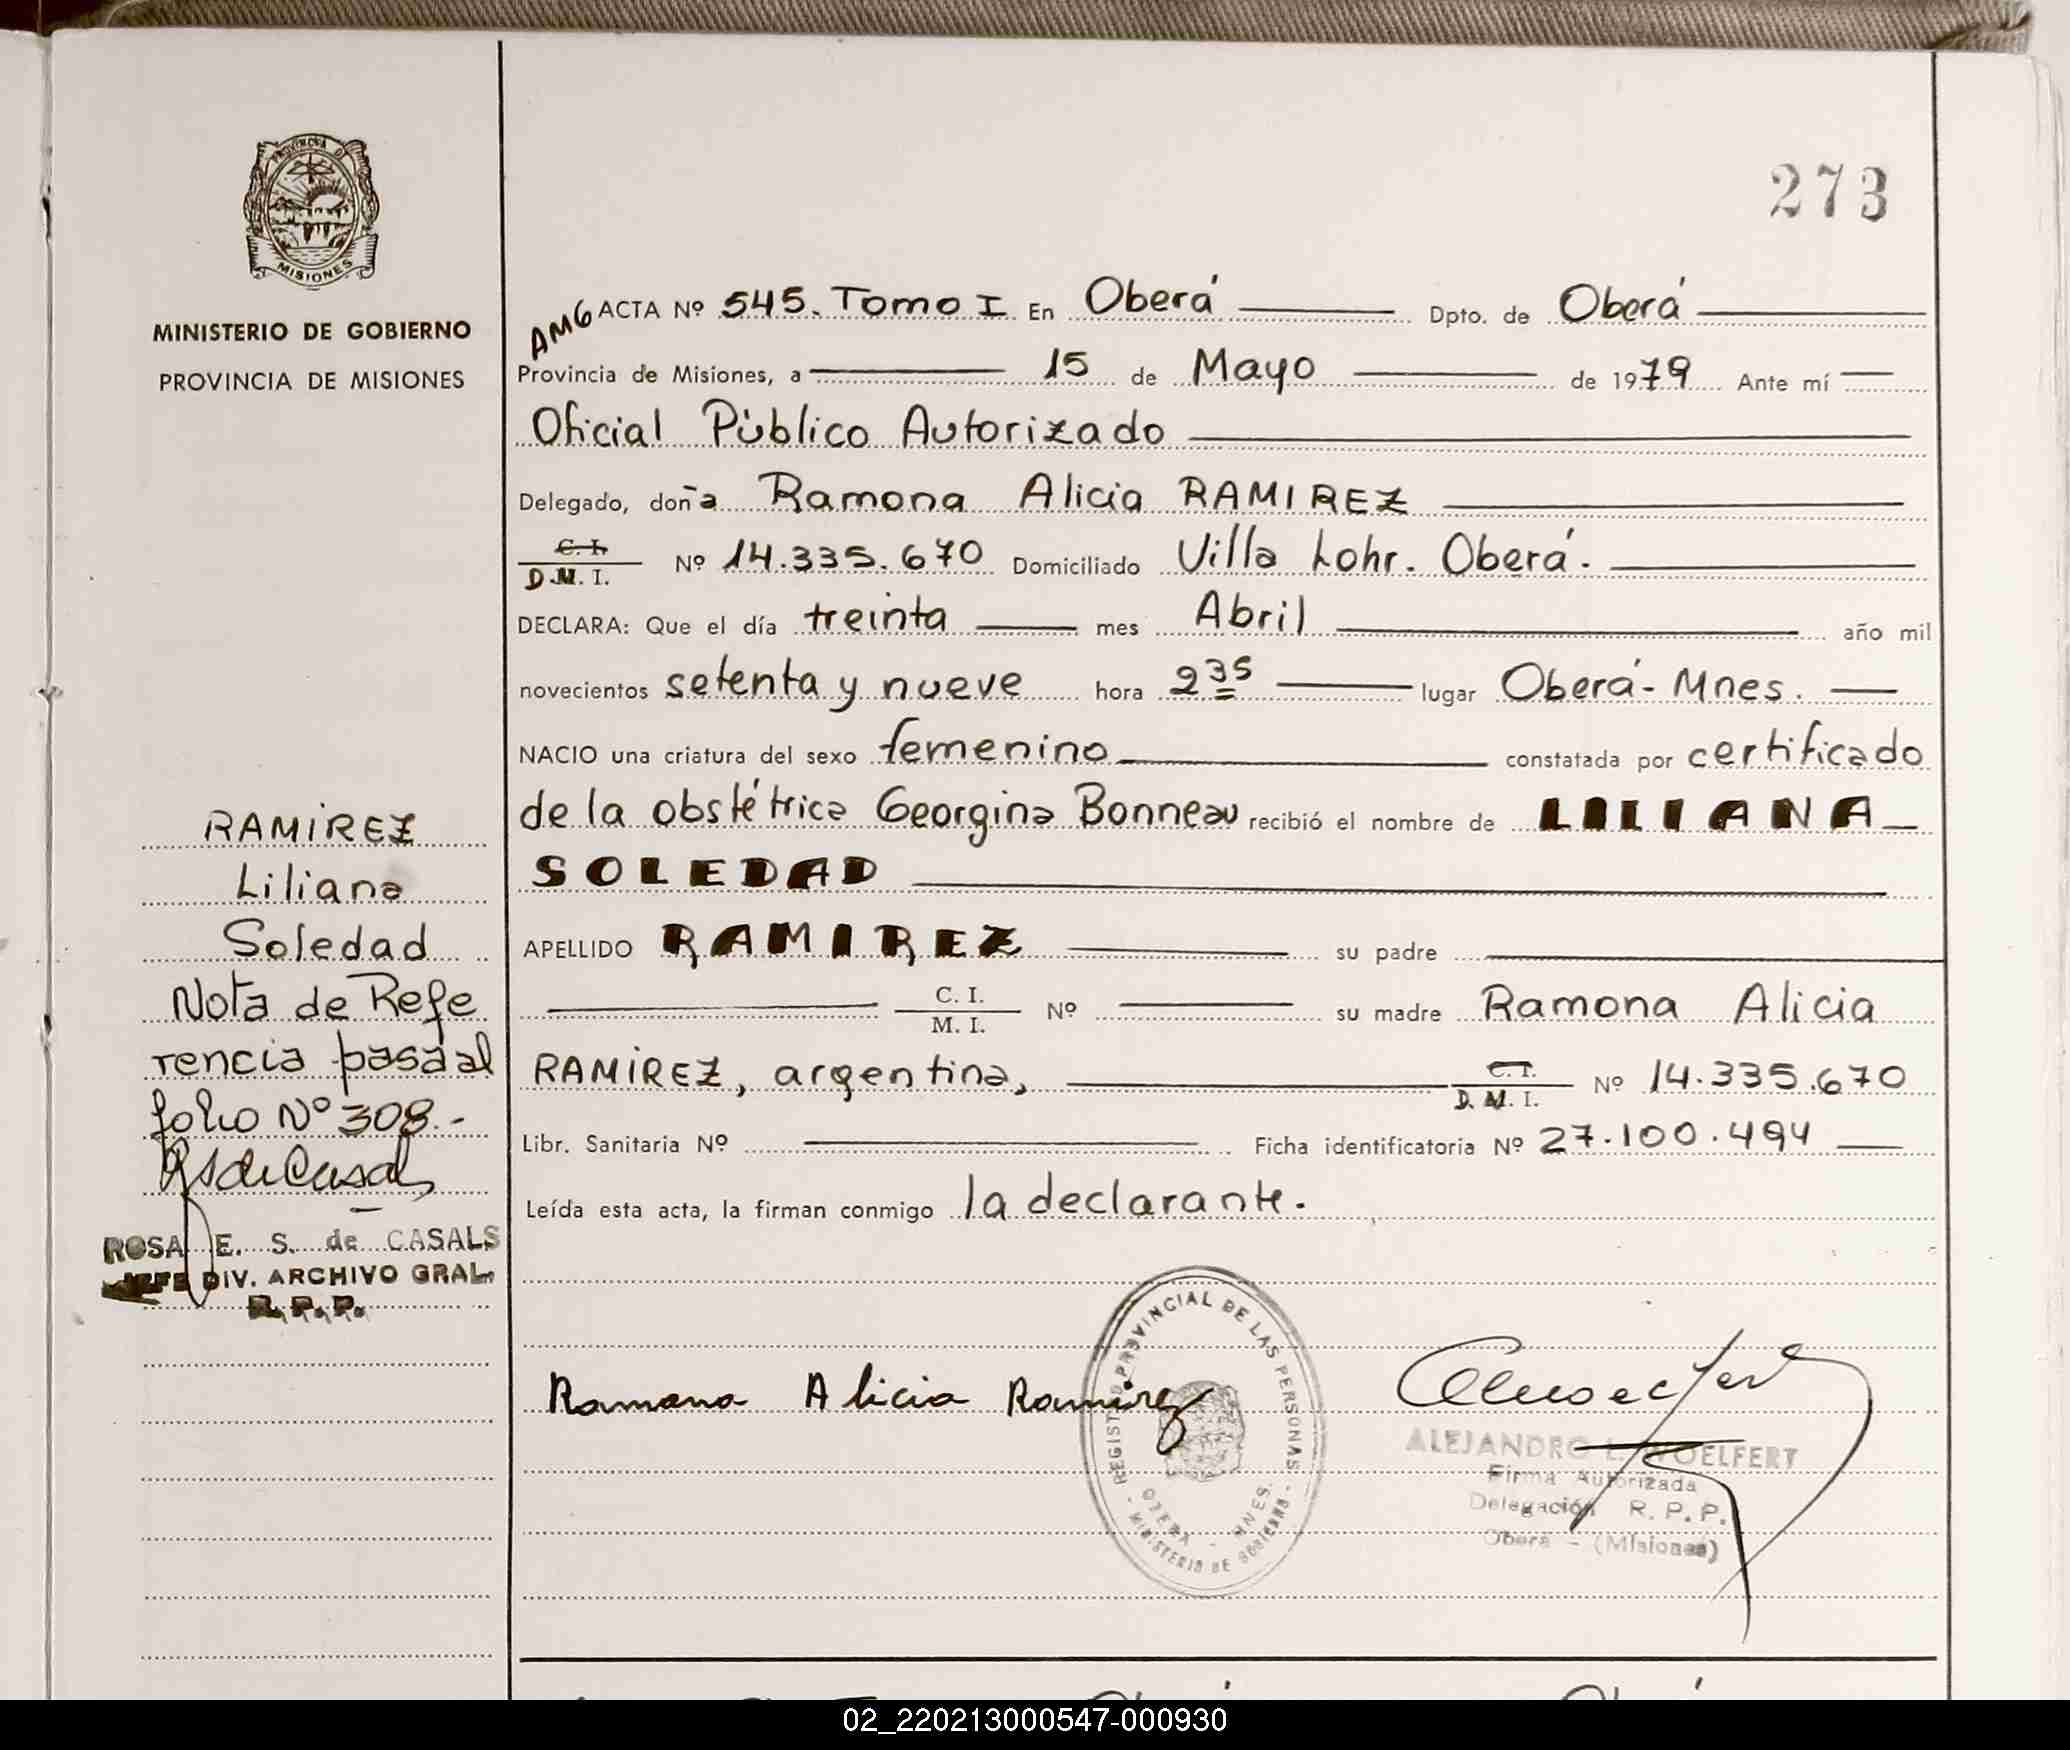 PROVINCIA DE
MISIONES
MINISTERIO DE GOBIERNO
PROVINCIA DE MISIONES
RAMIREZ
Liliana
Soledad
Nota de Refe
rencia pasa al
folio Nº 308.-
RS de Casals
ROSA E. S. de CASALS
JEFE DIV. ARCHIVO GRAL.
R. P. P.
273
AMG ACTA Nº 545. Tomo I En Oberá Dpto. de Oberá
Provincia de Misiones, a 15 de Mayo de 1979 Ante mí
Oficial Público Autorizado
Delegado, doña Ramona Alicia RAMIREZ
C. I.
D.M. I. Nº 14.335.670 Domiciliado Villa Lohr. Oberá.
DECLARA: Que el día treinta mes Abril año mil
novecientos setenta y nueve hora 2 35 lugar Oberá- Mnes.
NACIO una criatura del sexo femenino constatada por certificado
de la obstétrica Georgina Bonneau recibió el nombre de LILIANA
SOLEDAD
APELLIDO RAMIREZ su padre
C. I.
M. I. Nº su madre Ramona Alicia
RAMIREZ, argentina, C. I.
D. M. I. Nº 14.335.670
Libr. Sanitaria Nº Ficha identificatoria Nº 27.100.494
Leída esta acta, la firman conmigo la declarante.
Ramona Alicia Ramirez
REGISTRO PROVINCIAL DE LAS PERSONAS
OBERA - MNES.
- MINISTERIO DE GOBIERNO -
ALEJANDRO L. WOELFERT
Firma Autorizada
Delegación R. P. P.
Oberá - (Misiones)
02_220213000547-000930